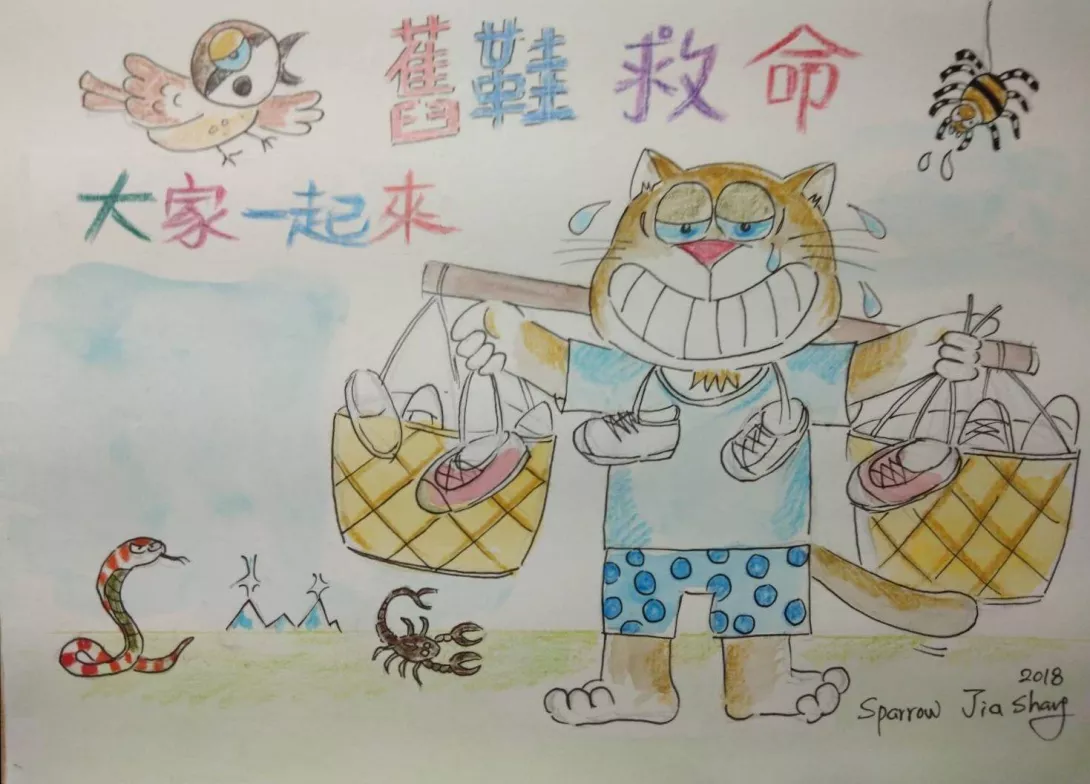 舊鞋救命
大家一起來
2018
Sparrow Jia Shang